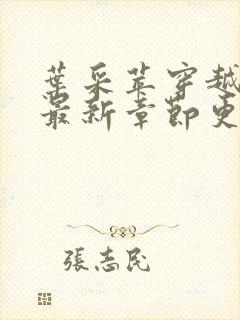 葉采苹穿越
最新章節更
張志民